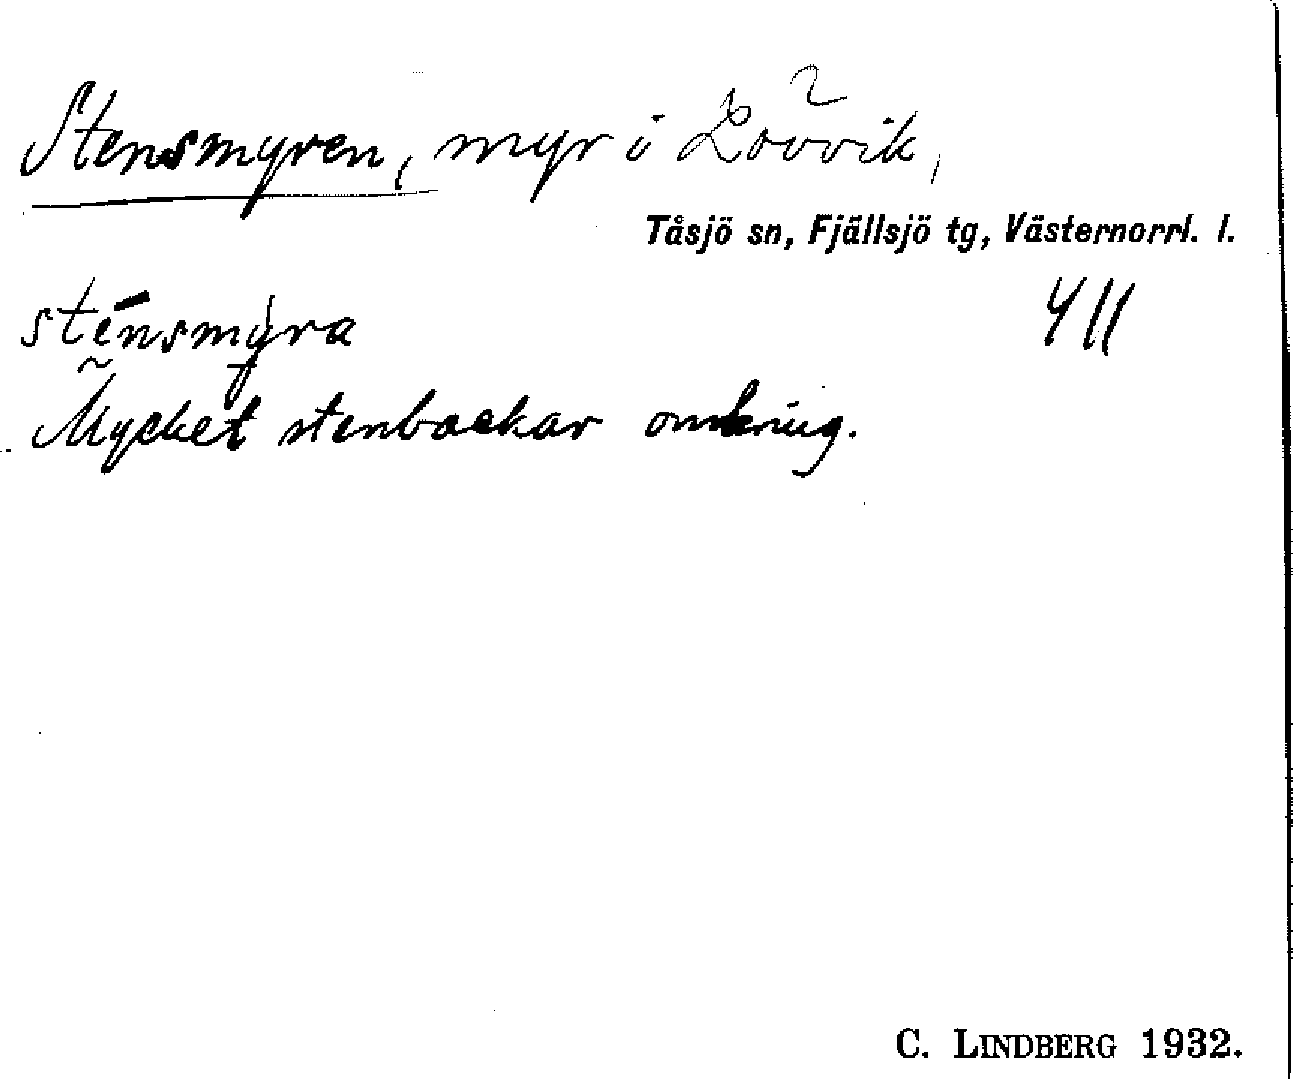 Stensmyren, myr i Lövvik,
Tåsjö sn, Fjällsjö tg, Västernorrl. l.
sténsmyra
Mycket stenbackar omkring.
C. LINDBERG 1932.